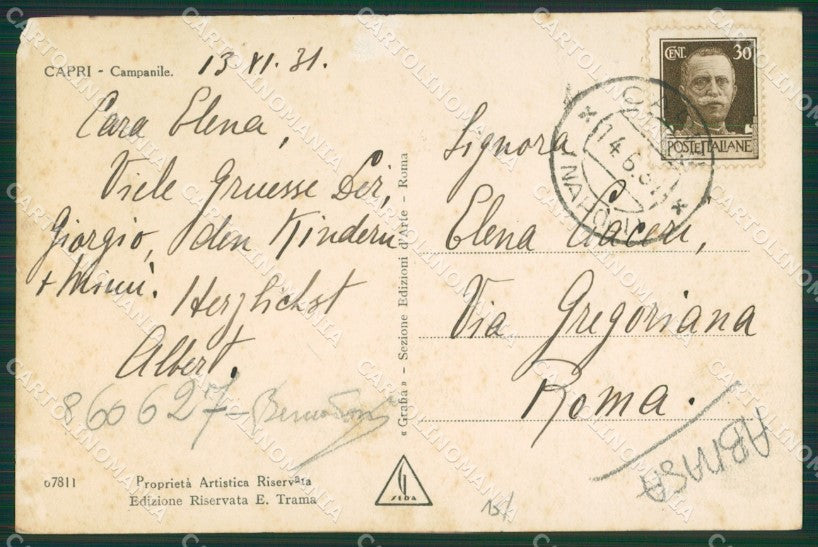 CAPRI - Campanile.
13 VI. 31.
Cara Elena,
Viele Gruesse Dir,
Giorgio, den Kindern
+ Mimi. Herzlichst
Albert.
860627-
67811
Proprietà Artistica Riservata
Edizione Riservata E. Trama
« Grafia » - Sezione Edizioni d'Arte - Roma
CENT. 30
POSTE ITALIANE
14.6.31
(NAPOLI)
Signora
Elena
Via Gregoriana
Roma.
CARTOLINOMANIA